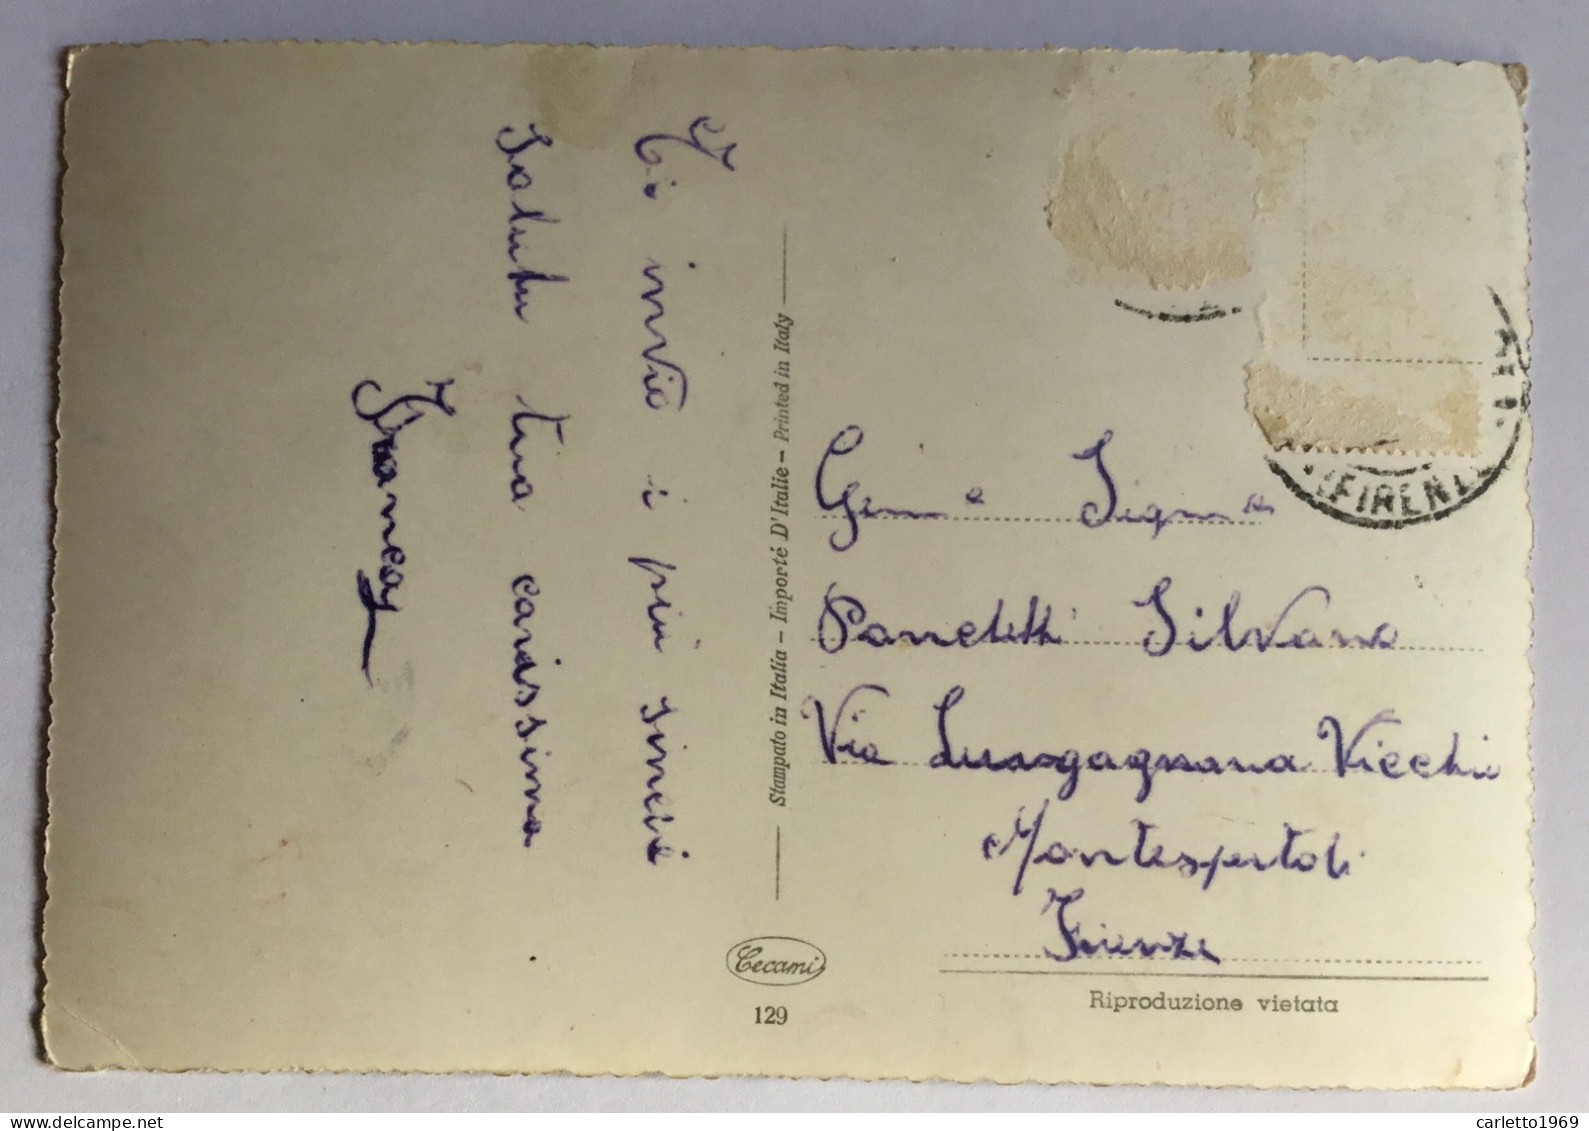 Ti invio i più sinceri
saluti tua carissima
Stampato in Italia – Importé D'Italie – Printed in Italy
Cecami
129
FIRENZE
Gem^a Sigm^a
Panchetti Silvana
Via Lungagnana Vicchi
Montespertoli
Firenze
Riproduzione vietata
carletto1969